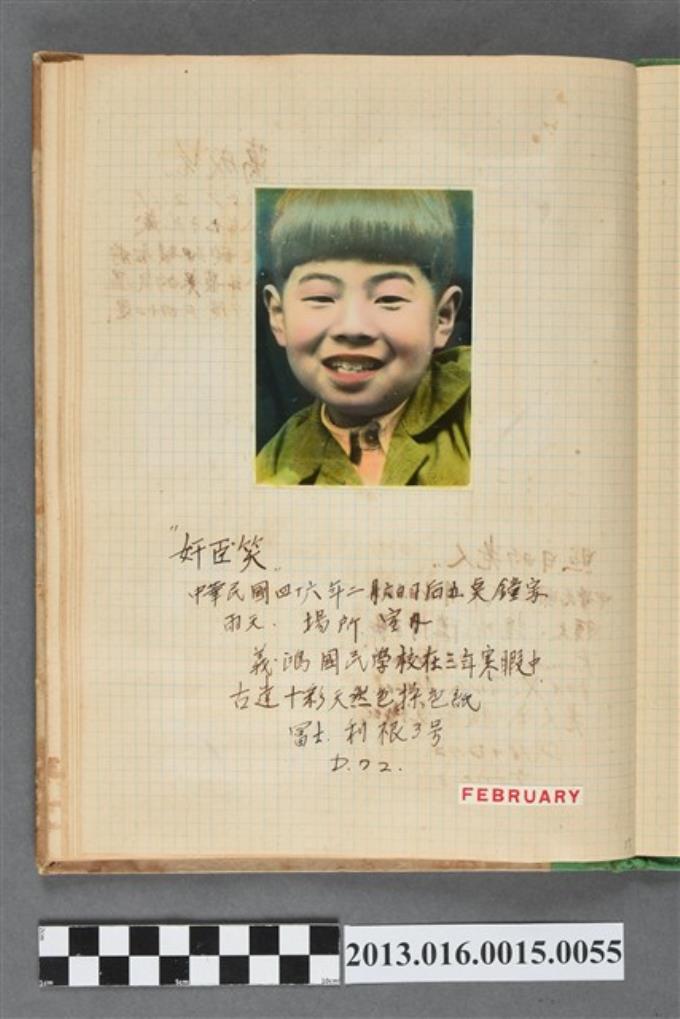 "奸臣笑"
中華民國四十六年二月六日日后五吳鐘家
雨天. 場所 室內
義鴻國民學校在三年寒暇中
古達十彩天然色採色紙
冨士. 利根3号
D.72.
FEBRUARY
2013.016.0015.0055
1cm 5cm 10cm